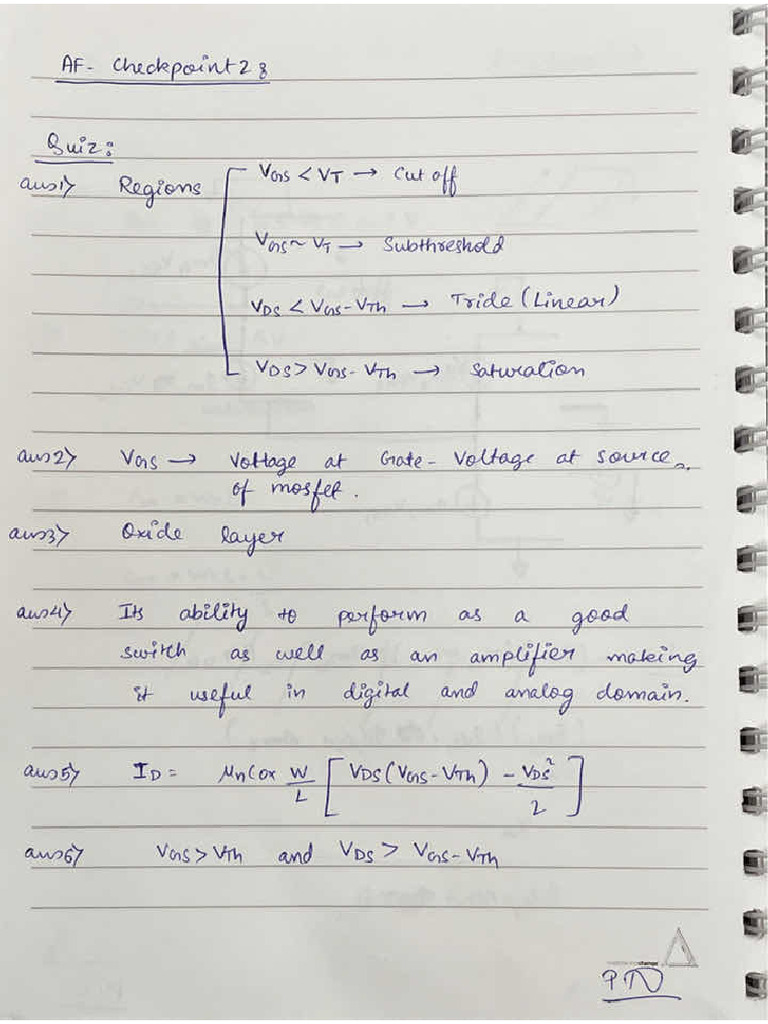 AF- Checkpoint 2 :
Quiz :
ans1> Regions
VGS < VT → Cut off
VGS ~ VT → Subthreshold
VDS < VGS - VTh → Tride (Linear)
VDS > VGS - VTh → Saturation
ans2> VGS → Voltage at Gate - Voltage at source
of mosfet.
ans3> Oxide layer
ans4> Its ability to perform as a good
switch as well as an amplifier making
it useful in digital and analog domain.
ans5> ID = μnCox W/L [ VDS (VGS - VTh) - VDS²/2 ]
ans6> VGS > VTh and VDS > VGS - VTh
PTO